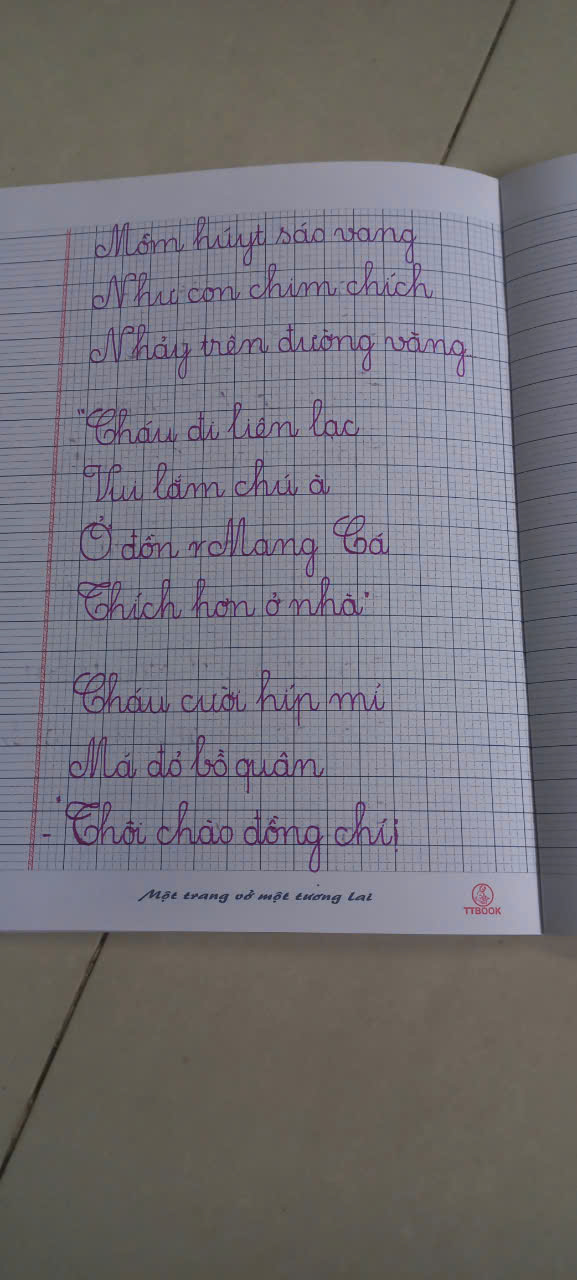 Mồm huýt sáo vang
Như con chim chích
Nhảy trên đường vàng
"Cháu đi liên lạc
Vui lắm chú à
Ở đồn Mang Cá
Thích hơn ở nhà"
Cháu cười híp mí
Má đỏ bồ quân
- "Thôi chào đồng chí!
Một trang vở một tương lai
TTBOOK